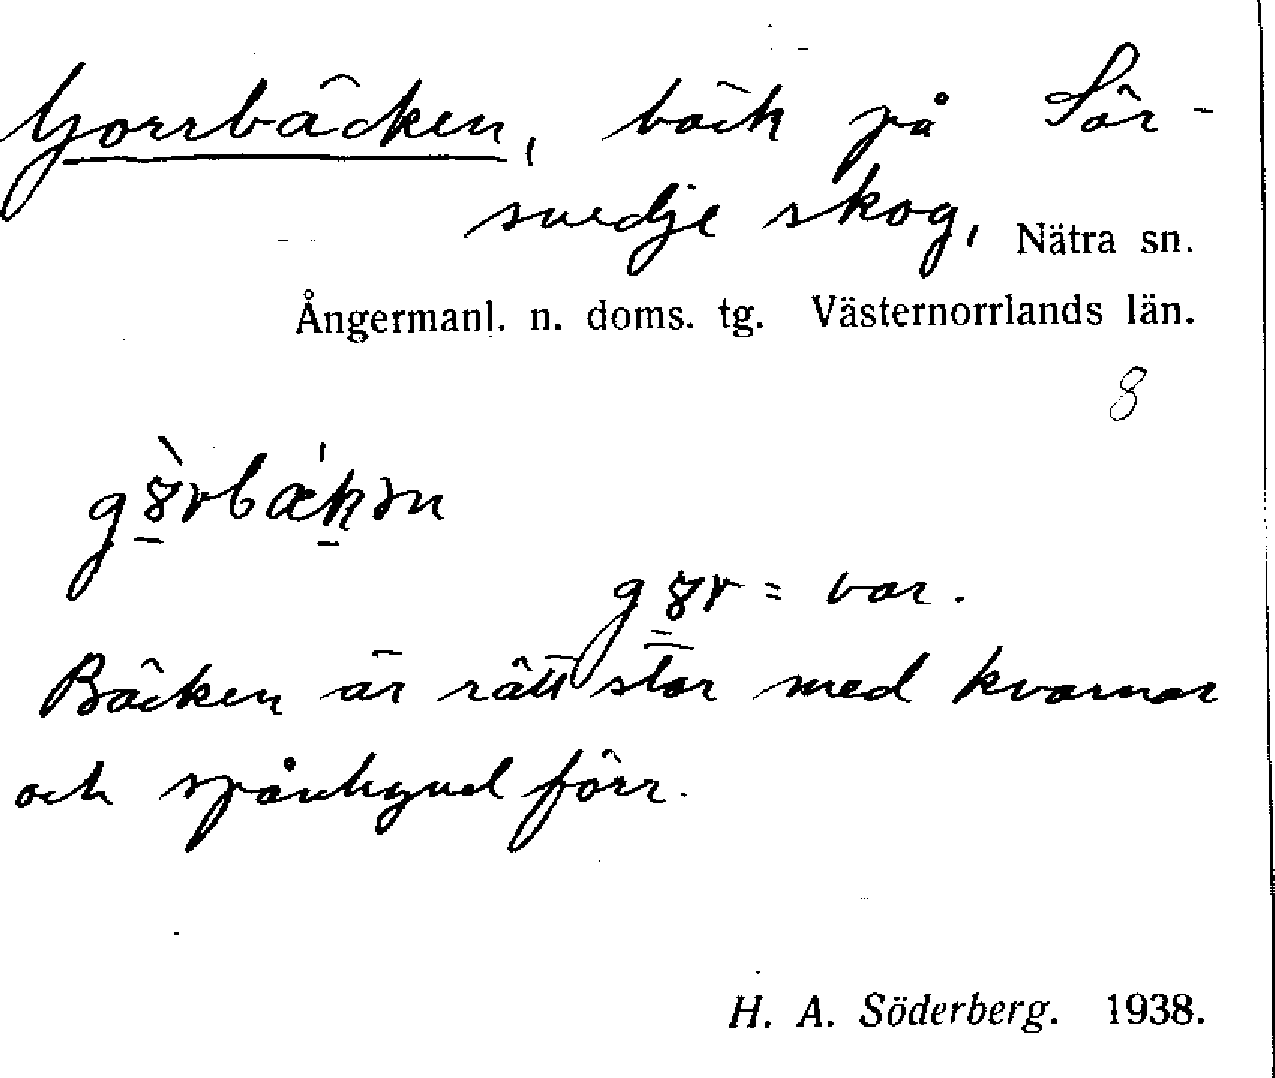 Gorrbäcken, bäck på Sör-
svedje skog, Nätra sn.
Ångermanl. n. doms. tg. Västernorrlands län.
8
= var.
Bäcken är rätt stor med kvarnar
och förr.
H. A. Söderberg. 1938.